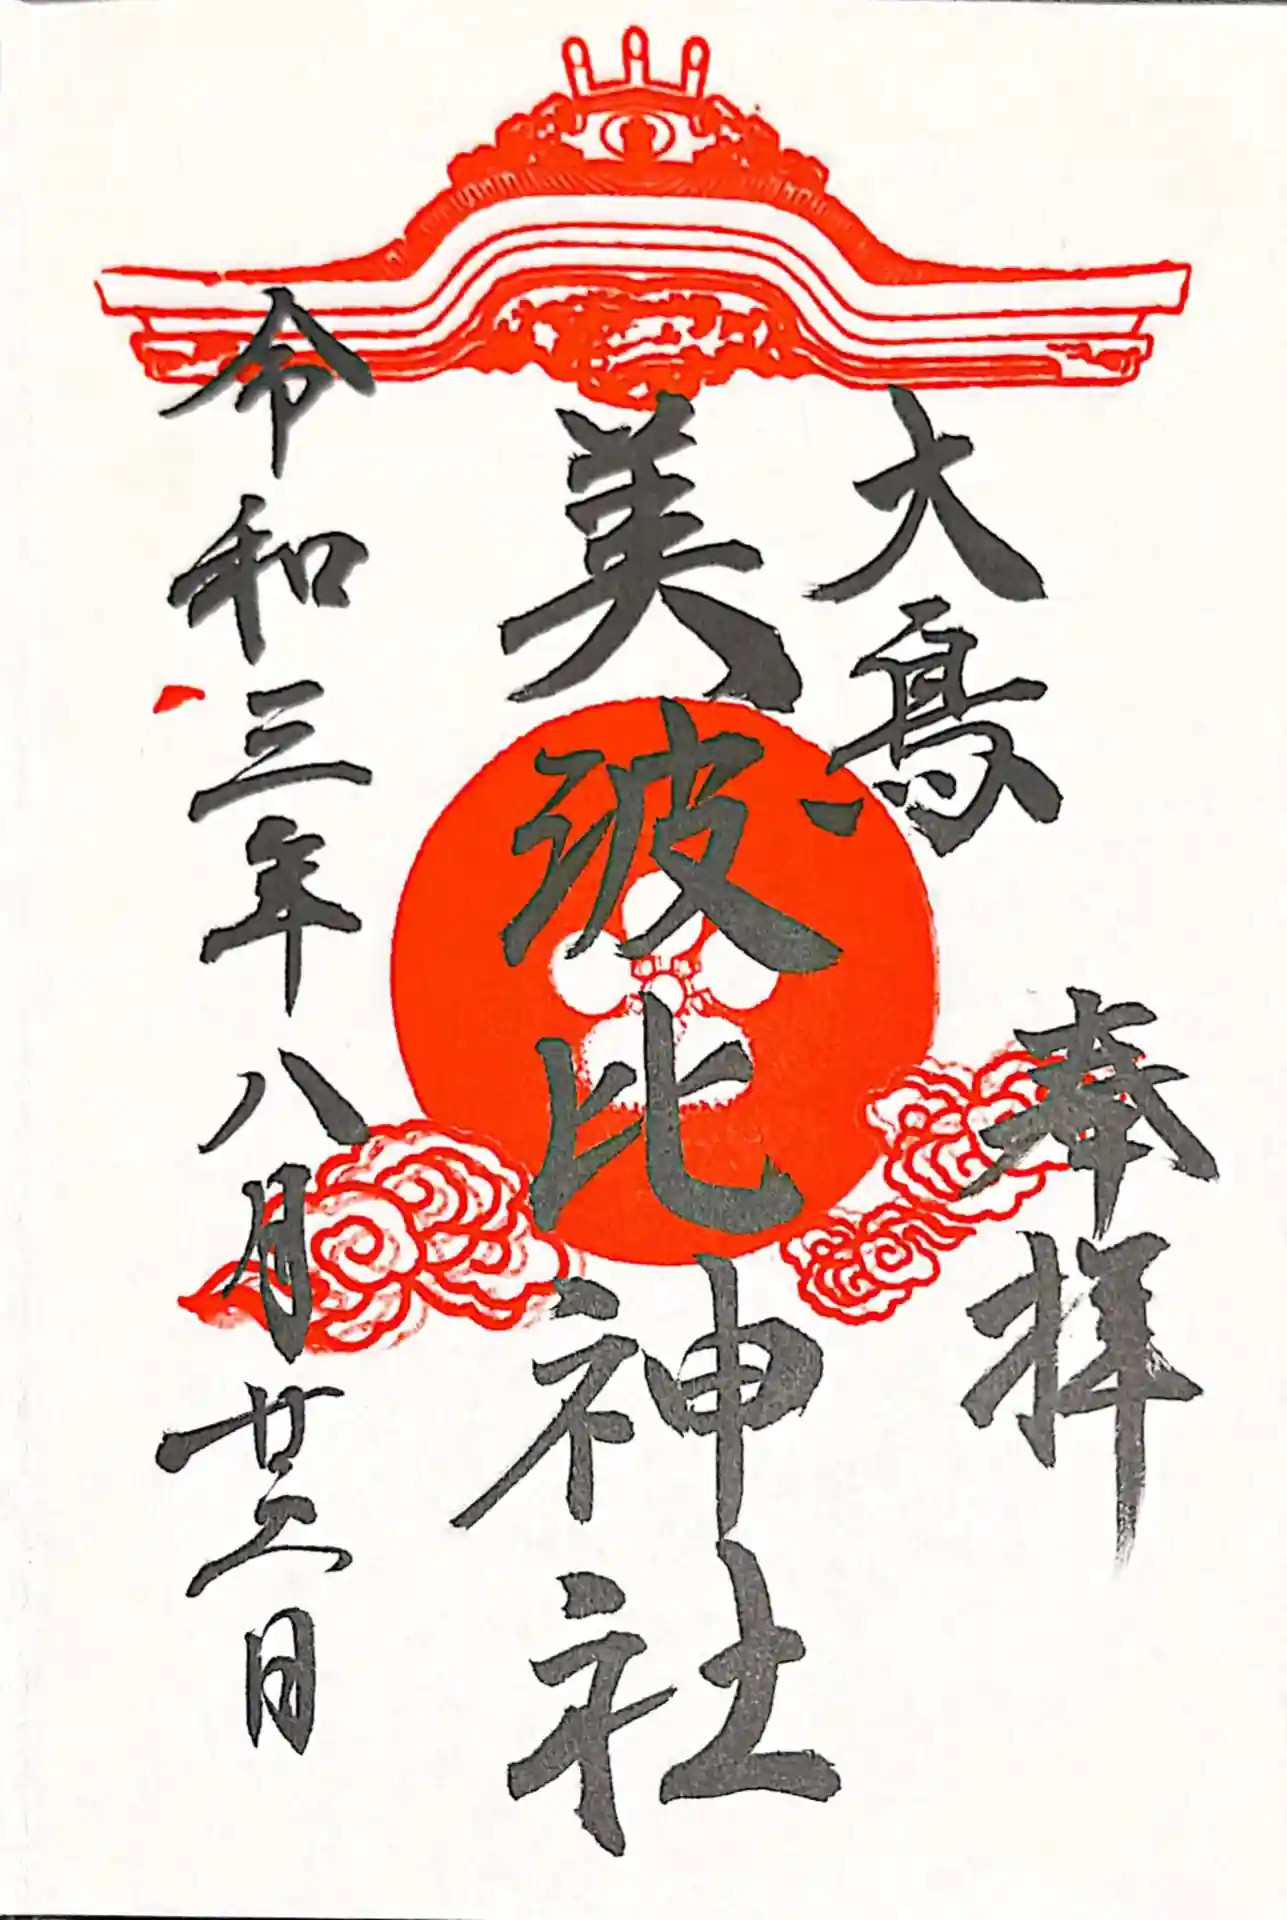 奉拝
大鳥
美波比神社
令和三年八月廿二日